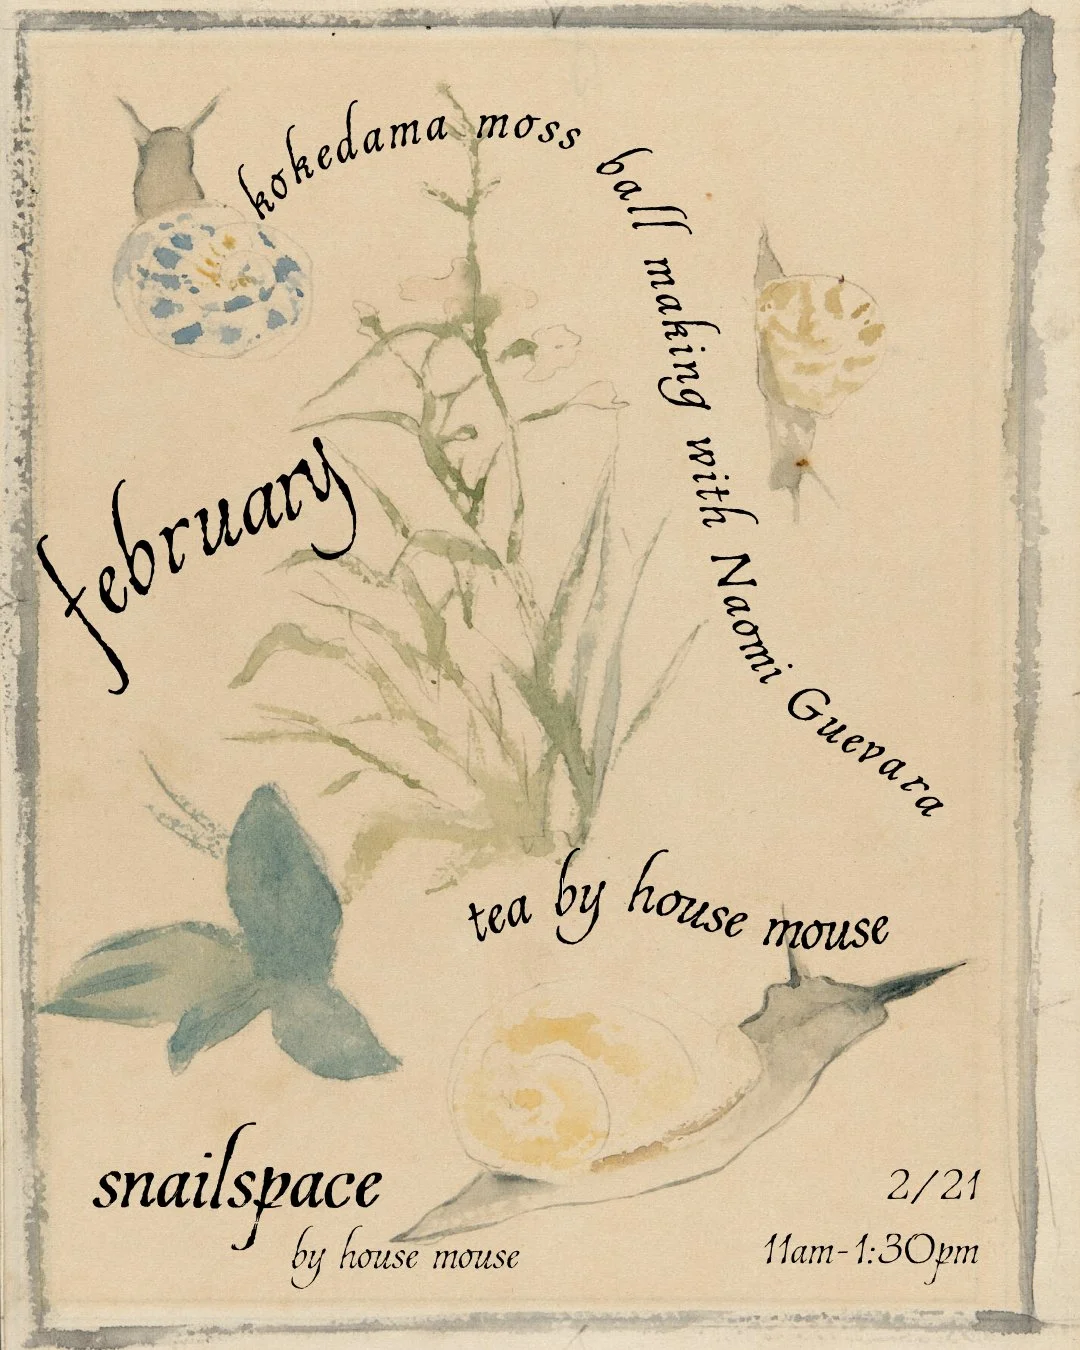 kokedama moss ball making with Naomi Guevara
february
tea by house mouse
snailspace
by house mouse
2/21
11am-1:30pm